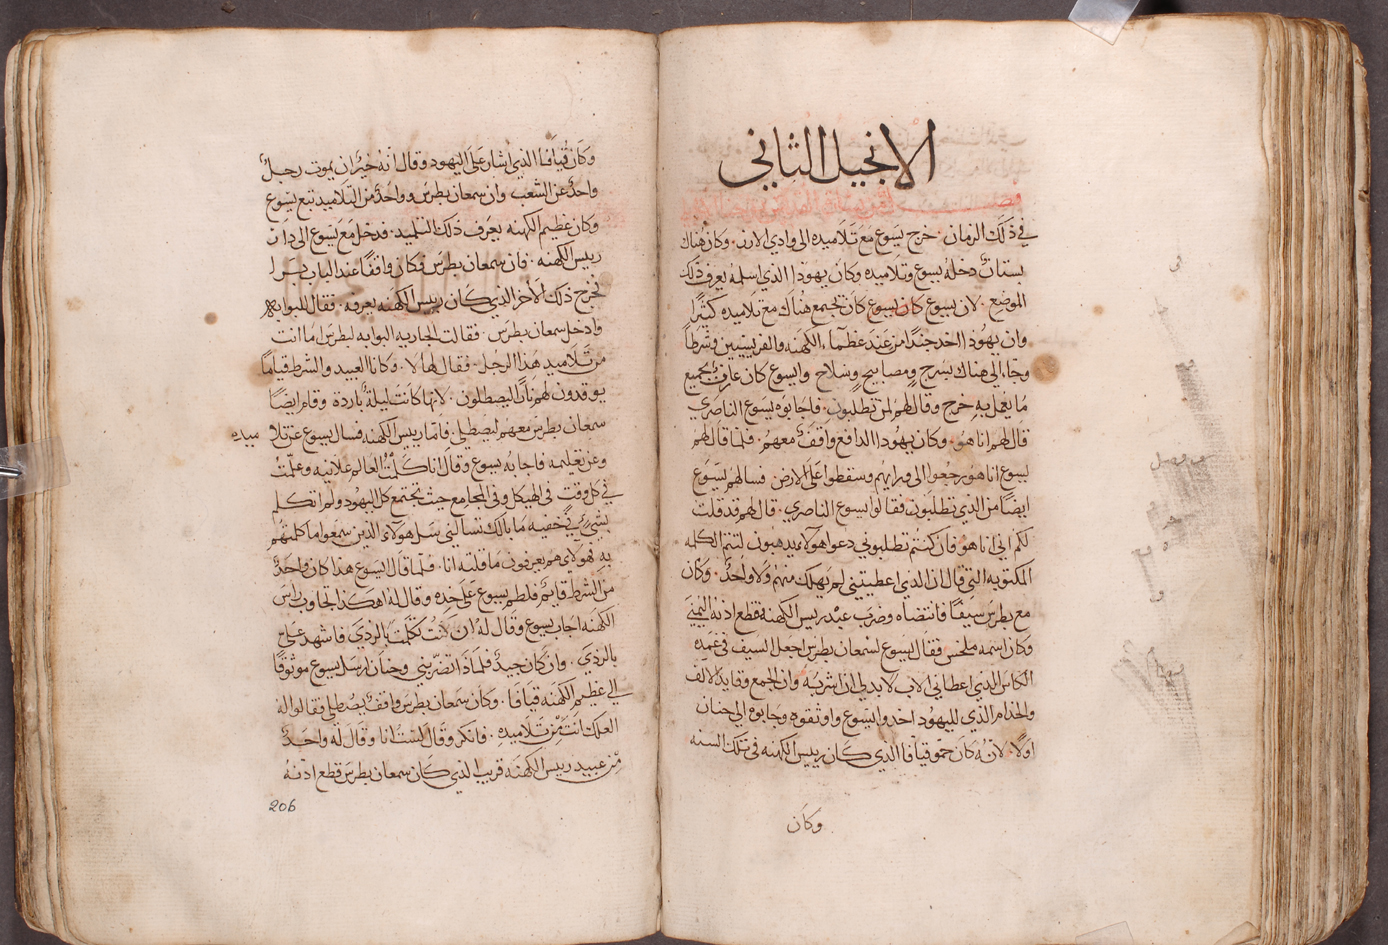 الانجيل الثاني
في ذلك الزمان . خرج يسوع مع تلاميده الى وادي الارز . وكان هناك
بستان دخله يسوع وتلاميده وكان يهودا الذي اسلمه يعرف ذلك
الموضع . لان يسوع كان يسوع كان يجتمع هناك مع تلاميده كثيرًا
وان يهودا اخد جندًا من عند عظما الكهنه والفريسيين وشرطًا
وجا الى هناك بسرج ومصابيح وسلاح وايسوع كان عارف بجميع
ما يعمل به خرج وقال لهم لمن تطلبون . فاجابوه يسوع الناصري
قال لهم انا هو . وكان يهودا الدافع واقف معهم . فلما قال لهم
ليسوع انا هو رجعوا الى ورايهم وسقطوا على الارض فسالهم يسوع
ايضًا من الذي تطلبون فقالوا يسوع الناصري . قال لهم قد قلت
لكم اني انا هو فان كنتم تطلبوني دعوا هولاء يدهبون لتتم الكلمه
المكتوبه التي قال ان الدي اعطيتني لم يهلك منهم ولا واحد . وكان
مع بطرس سيفًا فانتضاه وضرب عبد ريس الكهنه فقطع ادنه اليمنى
وكان اسمه ملخس فقال يسوع لسمعان بطرس اجعل السيف في غمده
الكاس الدي اعطاني الاب لابد لي ان اشربه وان الجمع وقايد الالف
والخدام الذي لليهود اخدوا يسوع واوثقوه وجابوه الى حنان
اولًا . لانه كان حمو قيافا الدي كان رييس الكهنه في تلك السنه
وكان
وكان قيافا الذي اشار على اليهود وقال انه خير ان يموت رجل
واحد عن الشعب وان سمعان بطرس وواحد من التلاميد تبع يسوع
وكان عظيم الكهنه يعرف ذلك التلميد . فدخل مع يسوع الى دار
رييس الكهنه . فان سمعان بطرس فكان واقفًا عند الباب برا
فخرج ذلك الاخر الذي كان رييس الكهنه يعرفه . فقال للبوابه
وادخل سمعان بطرس . فقالت الجاريه البوابه لبطرس ما انت
من تلاميد هذا الرجل . فقال لها لا . وكانا العبيد والشرط قيامًا
يوقدون لهم نارًا ليصطلون . لانها كانت ليلة باردة وقام ايضًا
سمعان بطرس معهم ليصطلي . فاما رييس الكهنه فسال يسوع عن تلا
ميده
وعن تعليمه فاجابه يسوع وقال انا كلمت العالم علانيه وعلمت
في كل وقت في الهيكل وفي المجامع حيث تجتمع كل اليهود ولم اتكلم
بشي في خفيه ما بالك تسالني سل هولاي الذين سمعوا ما كلمتهم
به فهولاي هم يعرفون ما قلته انا . فلما قال ايسوع هدا كان واحد
من الشرط قايم فلطم يسوع على خده وقال له اهكذا تجاوب راس
الكهنه اجاب يسوع وقال له ان كنت تكلمت بالردي فاشهد علي
بالردي . وان كان جيد فلماذا تضربني وحنان ارسل يسوع موثوقًا
الى عظيم الكهنه قيافا . وكان سمعان بطرس واقف يصطلي فقالوا له
لعلك انت من تلاميده . فانكر وقال لست انا وقال له واحد
من عبيد رييس الكهنه قريب الذي كان سمعان بطرس قطع ادنه
206